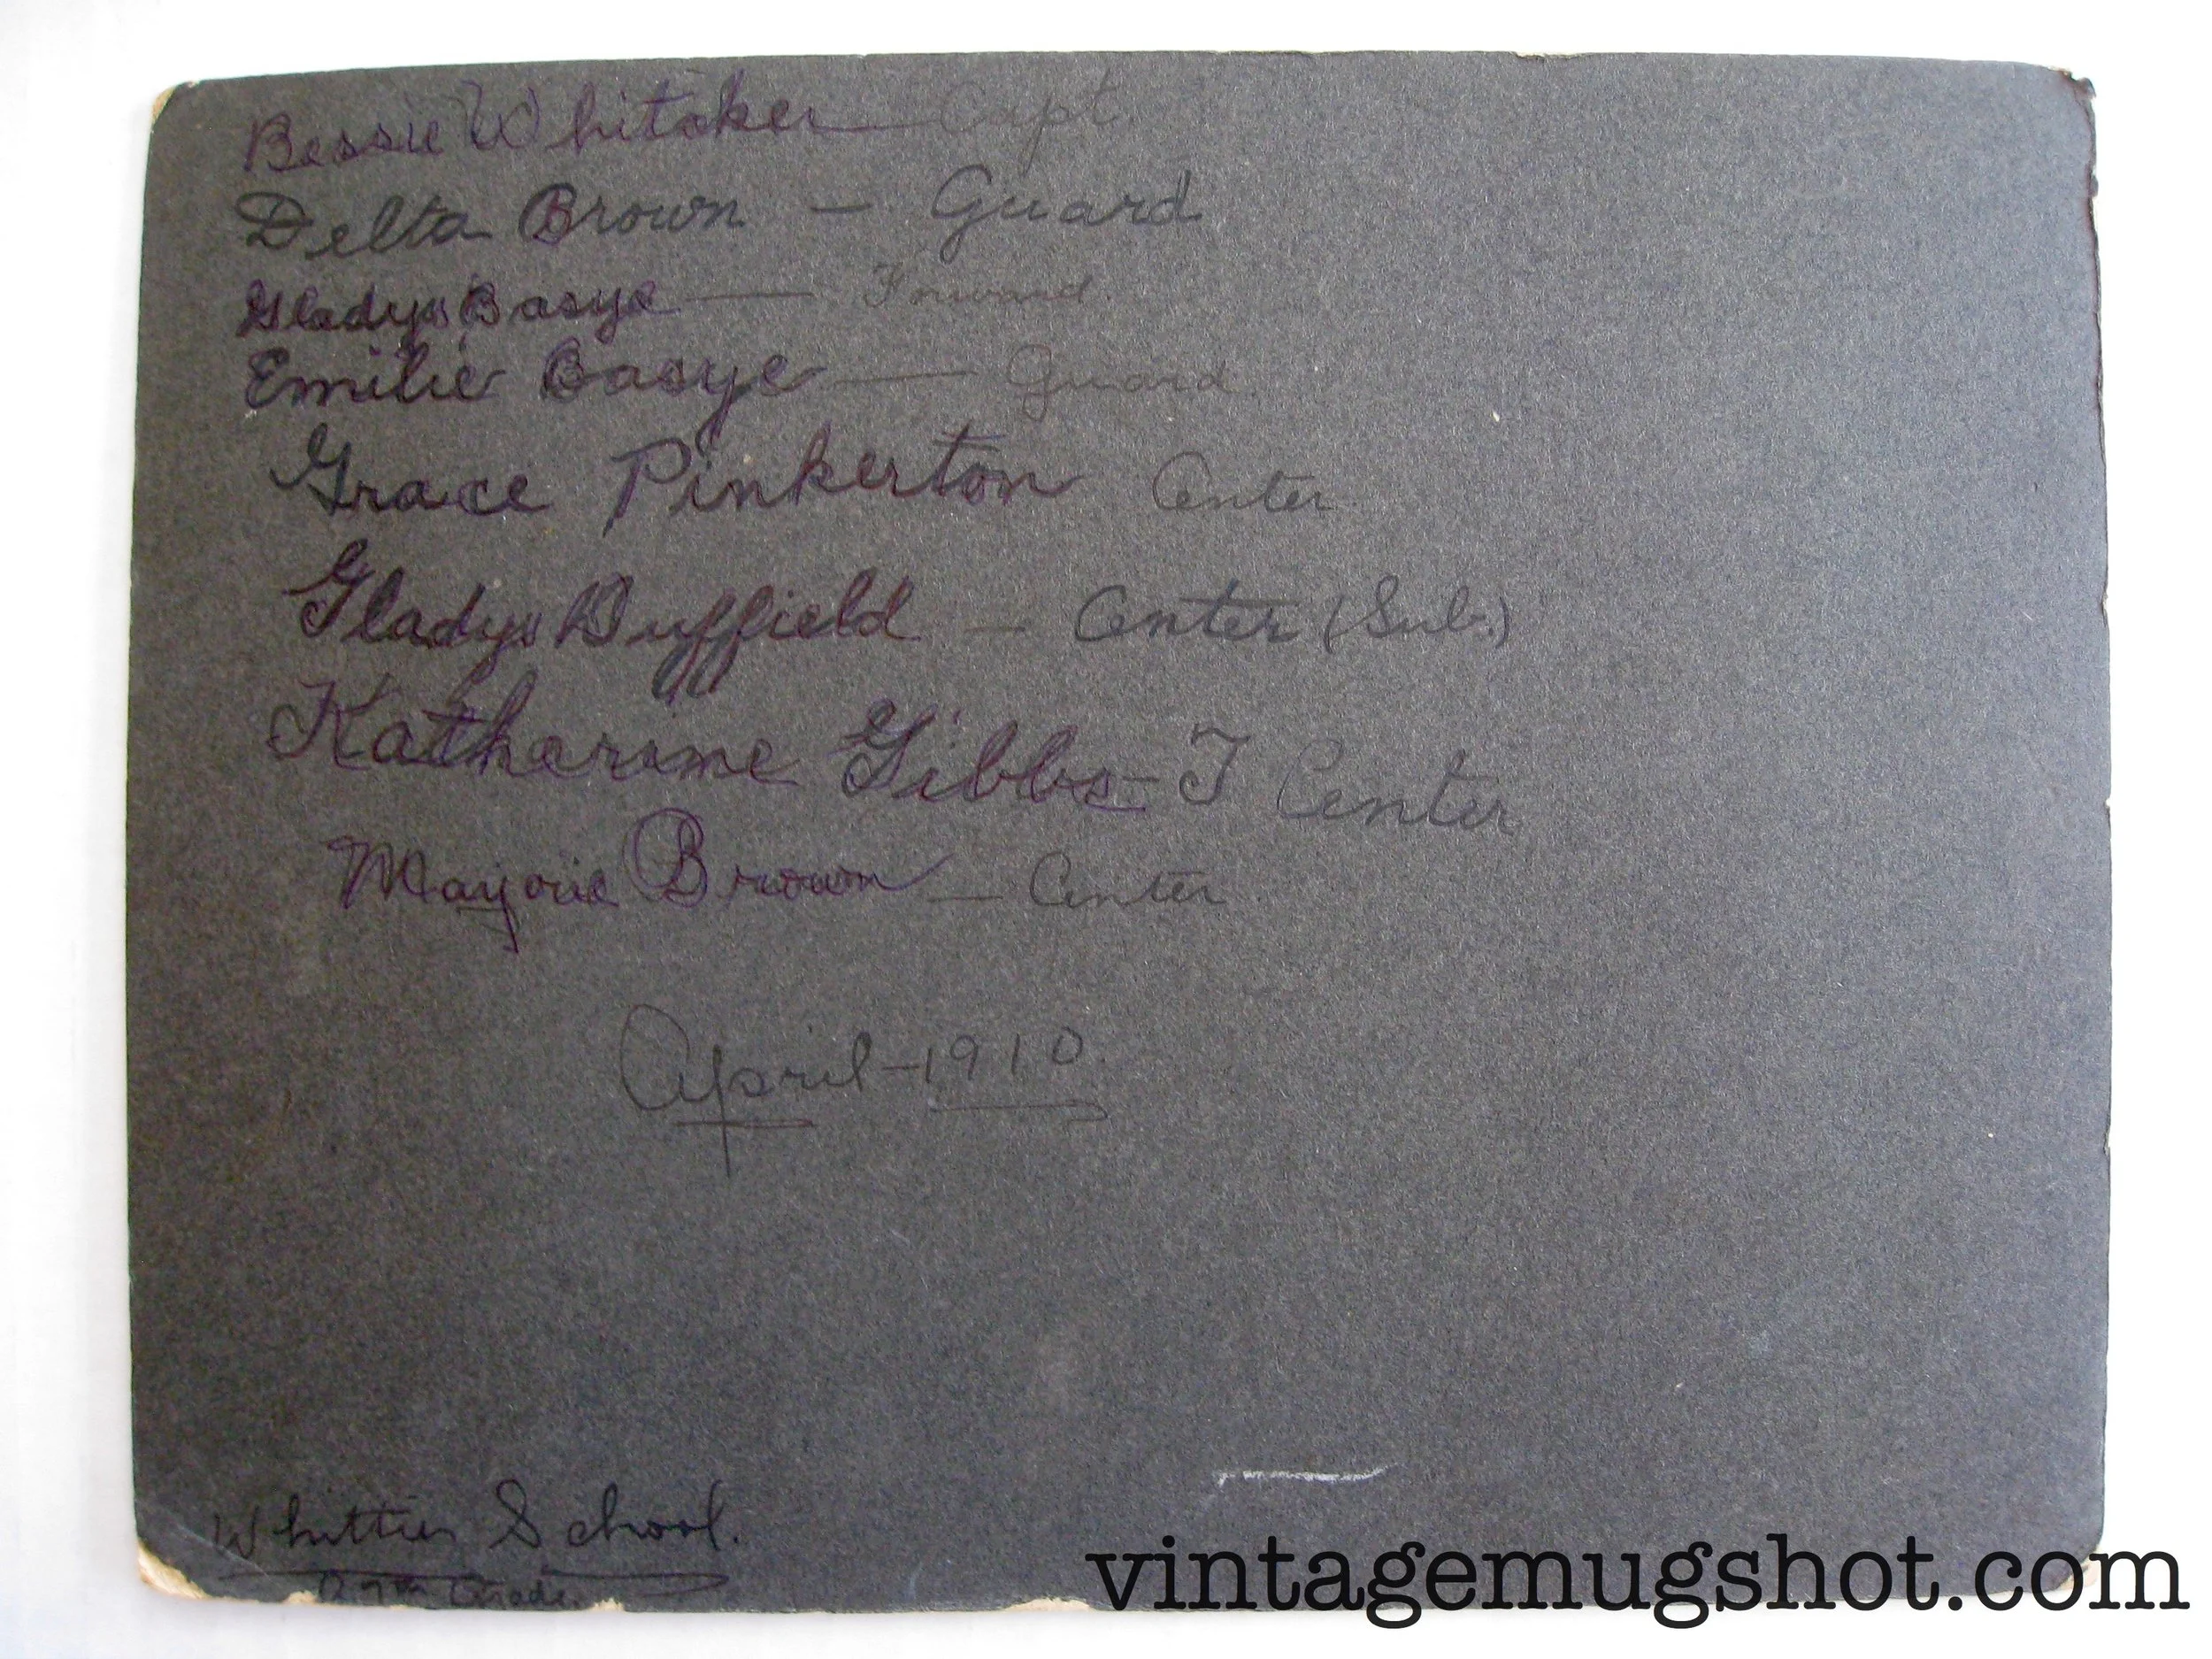 Bessie Whitaker — Capt.
Delta Brown — Guard
Gladys Basye — Forward
Emilie Basye — Guard
Grace Pinkerton Center
Gladys Duffield — Center (Sub.)
Katharine Gibbs - J Center
Marjorie Brown — Center
April - 1910.
Whittier School.
7th Grade
vintagemugshot.com